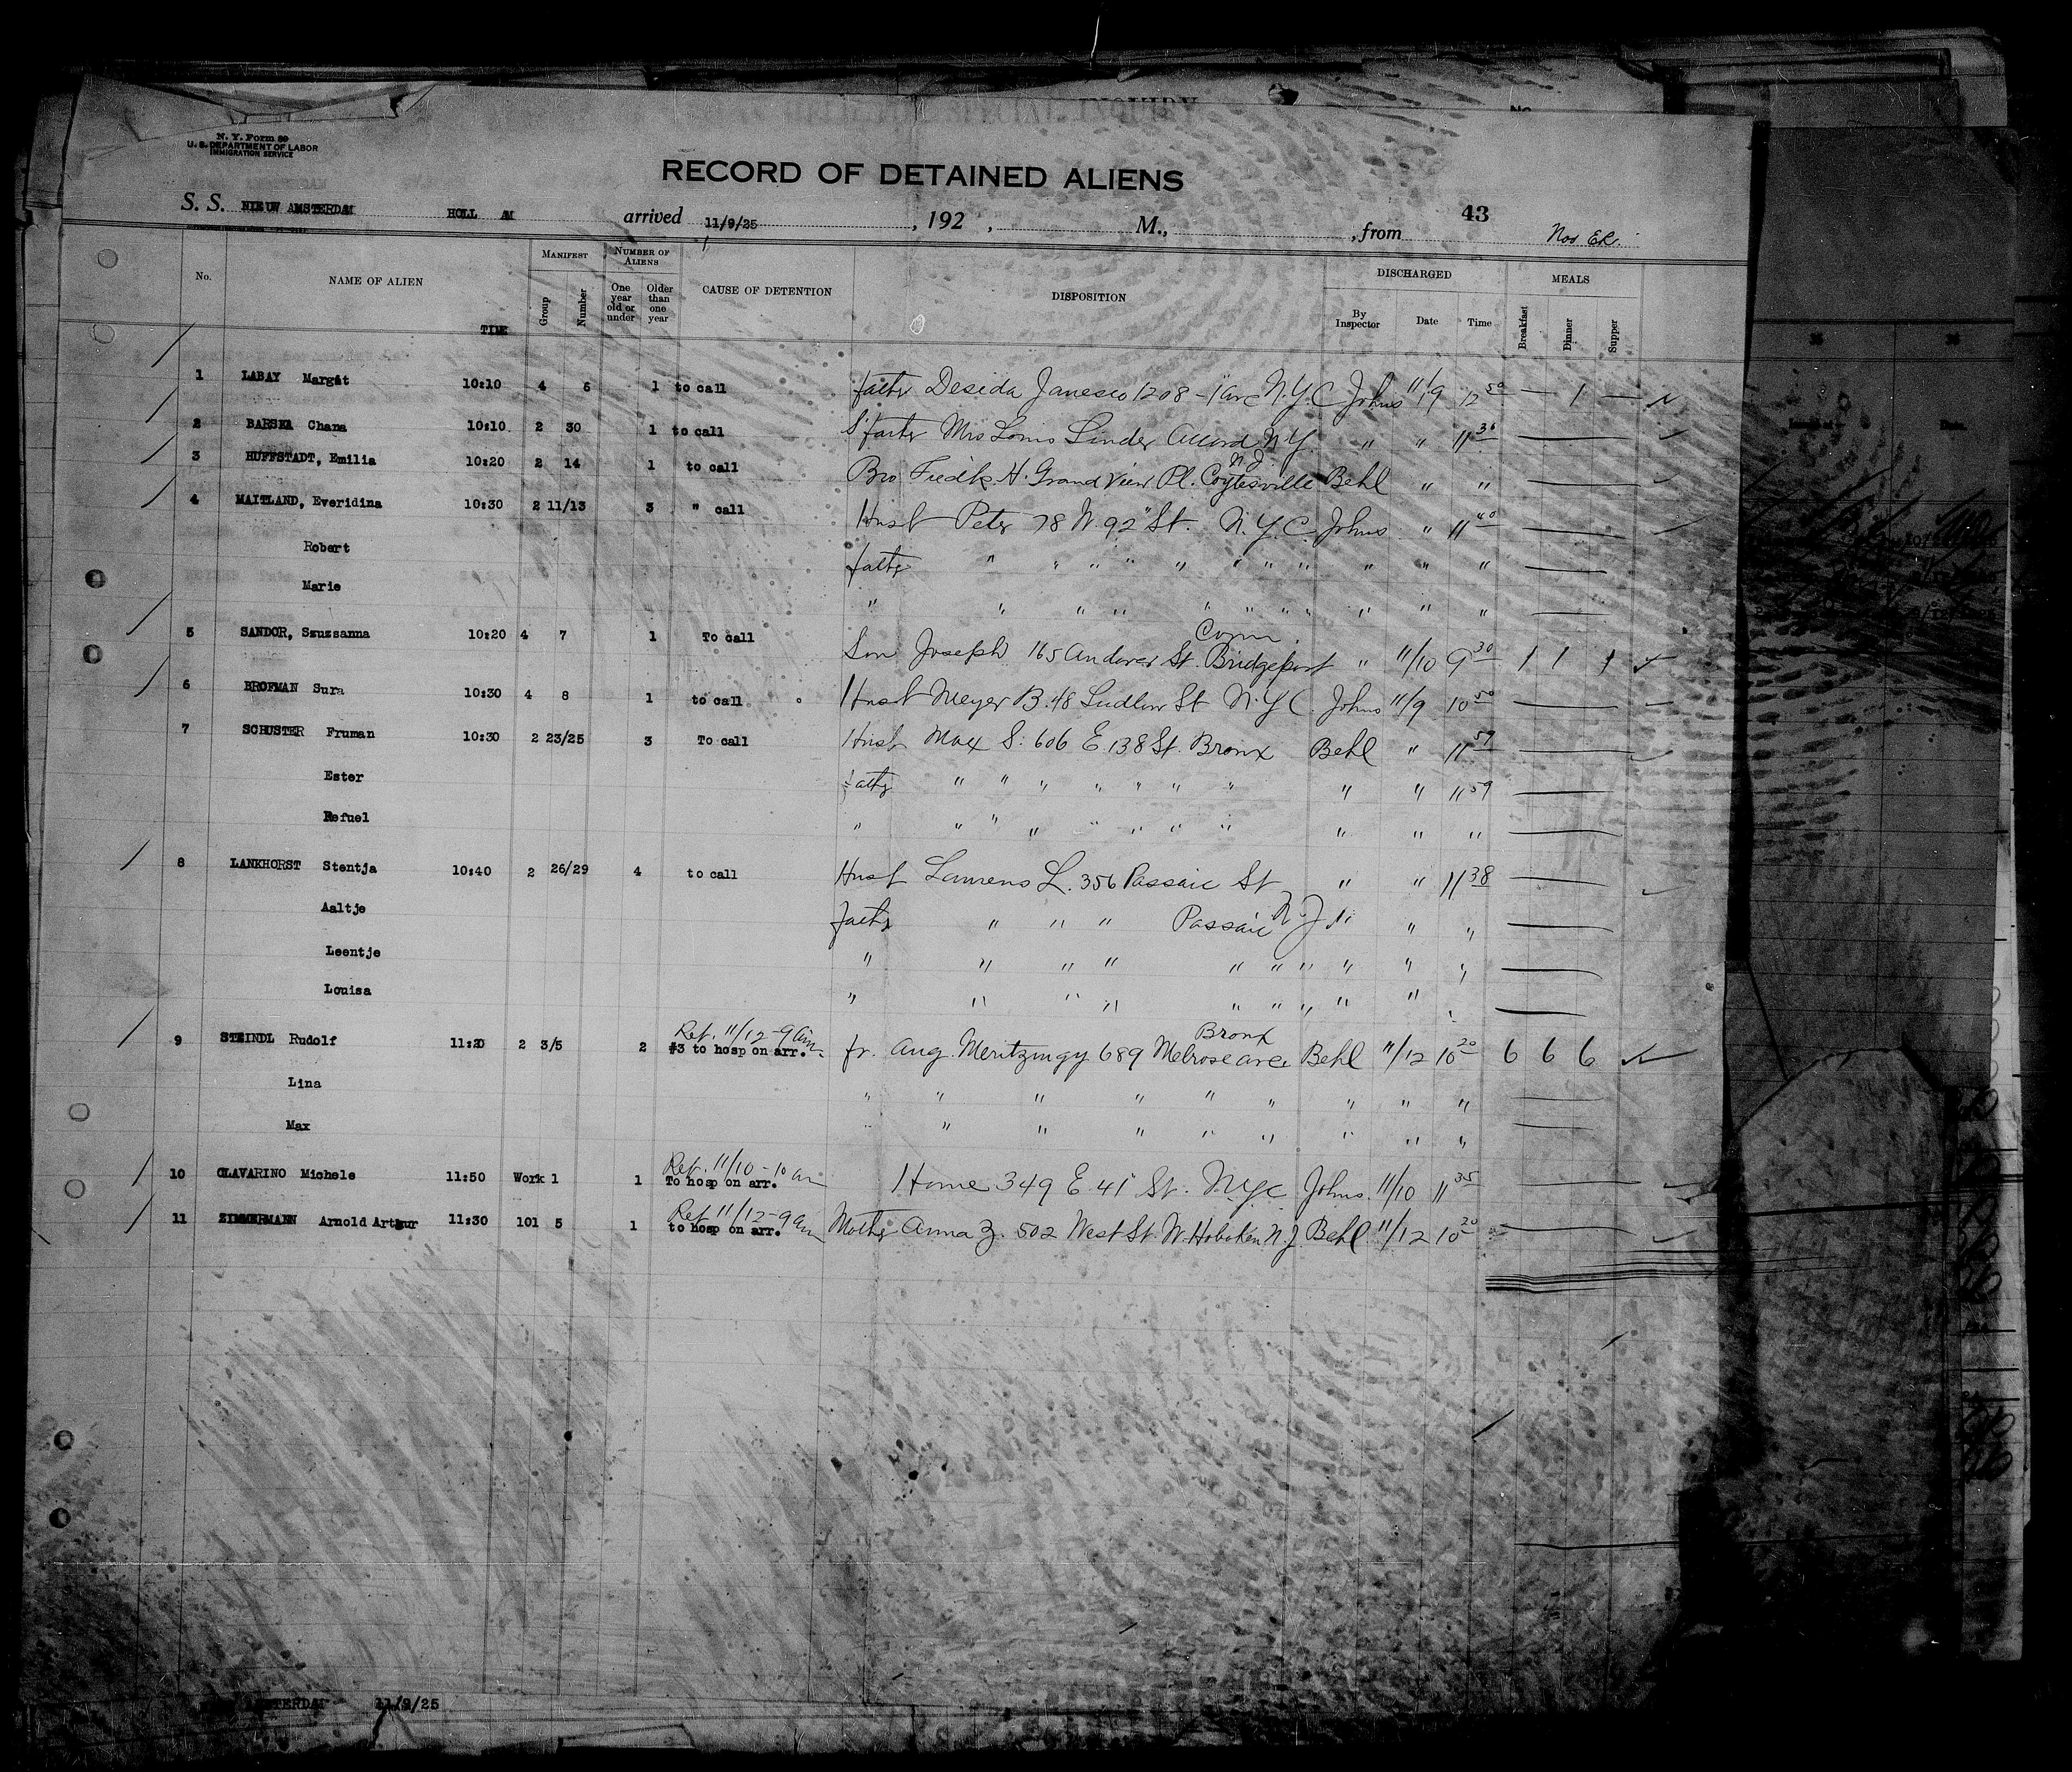 N. Y. Form 89
U. S. DEPARTMENT OF LABOR
IMMIGRATION SERVICE
RECORD OF DETAINED ALIENS
S. S. NIEUW AMSTERDAM HOLL AM arrived 11/9/25, 192 , M., , from 43
No. NAME OF ALIEN TIME MANIFEST Group Number NUMBER OF ALIENS One year old or under Older than one year CAUSE OF DETENTION DISPOSITION DISCHARGED By Inspector Date Time MEALS Breakfast Dinner Supper
1 LABAY Margit 10:10 4 6 1 to call Desida Janesco 1208 - 1 ave N.Y.C Johns 11/9 12 50 — 1 —
2 BARSKA Chana 10:10 2 30 1 to call Mrs Louis Linder Accord N.Y. " " 11 36
3 HUFFSTADT, Emilia 10:20 2 14 1 to call Bro Fredk H. Grand View Pl. Coytesville N J Behl " "
4 MAITLAND, Everidina 10:30 2 11/13 3 " call Husb Peter 78 W. 92" St. N.Y.C. Johns " 11 40
Robert fathr " " " " " " " " " " "
Marie " " " " " " " " " " "
5 SANDOR, Szuzsanna 10:20 4 7 1 To call Son Joseph 165 Andover St. Bridgeport Conn. " 11/10 9 30 1 1 1
6 BROFMAN Sura 10:30 4 8 1 to call Husb Meyer B. 48 Ludlow St N.Y C. Johns 11/9 10 50
7 SCHUSTER Fruman 10:30 2 23/25 3 To call Husb Max S. 606 E. 138 St. Bronx Behl " 11 59
Ester fathr " " " " " " " " " 11 59
Refuel " " " " " " " " " " "
8 LANKHORST Stentja 10:40 2 26/29 4 to call Husb Laurens L. 356 Passaic St " " 11 38
Aaltje fathr " " " Passaic N.J " " "
Leentje " " " " " " " " " "
Louisa " " " " " " " " "
9 STEINDL Rudolf 11:20 2 3/5 2 Ret. 11/12 - 9 am #3 to hosp on arr. fr. Aug. Meritzingy 689 Melrose ave. Bronx Behl 11/12 10 20 6 6 6
Lina " " " " " " " " "
Max " " " " " " " " "
10 CLAVARINO Michele 11:50 Work 1 1 Ret. 11/10 - 10 am To hosp on arr. Home 349 E. 41" St. N.Y.C Johns. 11/10 11 35
11 ZIMMERMANN Arnold Arthur 11:30 101 5 1 Ret 11/12 - 9 am to hosp on arr. Mother Anna Z. 502 West St. W. Hoboken N.J. Behl 11/12 10 20
AMSTERDAM 11/9/25